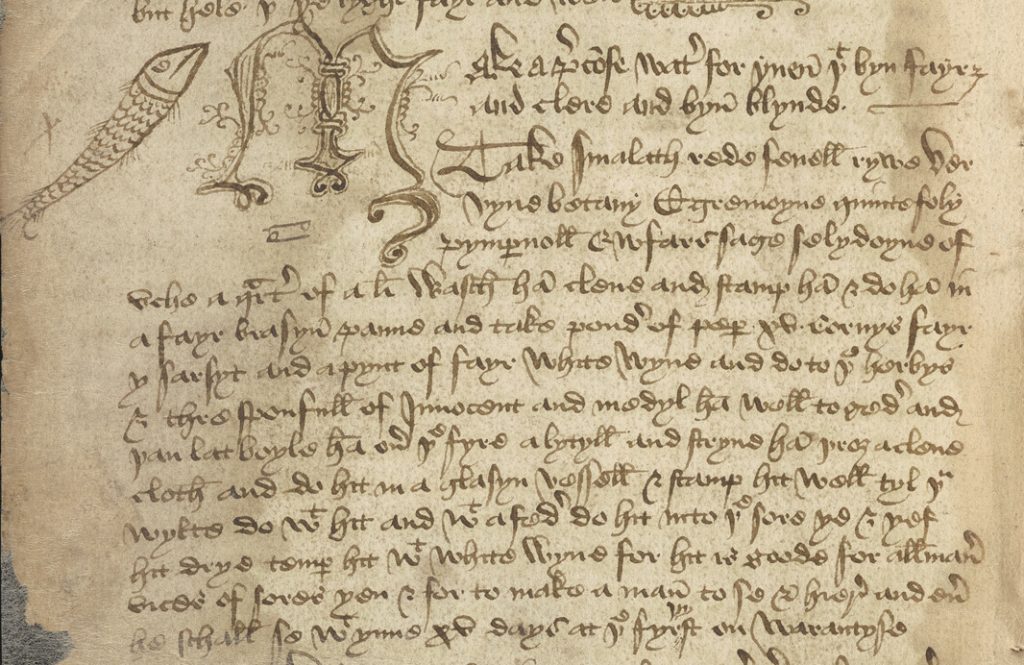 but hele þ yʳ eyghe fayr and well
Make a p̄cose watʳ for ynen þᵗ byn fayre
and clere and byn̄ blynde.
Take smalach rede fenell rywe ver
vyne betany Egremoyne quintefoly
pympnoll Ewfras sage selydoyne of
vche a qʳtʳ of a li wasch hā clene and stamp hā & do hā in
a fayr brasyn̄ panne and take poudʳ of pep xv cornys fayr
y sarsyt and a pynt of fayr white wyne and do to þᵉ herbys
& thre sponfull of Innocent and medyl hā well to gedʳ and
þan lat boyle hā on̄ þᵉ fyre a lytyll and stryne hā þroȝ a clene
cloth and do hit in a glasyn vessell & stamp hit well tyl þᵘ
wylte do wᵗ hit and wᵗ a fedʳ do hit into þᵉ sore ye & yef
hit drye temp hit wᵗ white wyne for hit is goode for all man̄
vices of sores yen & for to make a man̄ to se þᵗ and en̄
he schall se wᵗynne xv days at þᵉ fyrst on warantyse